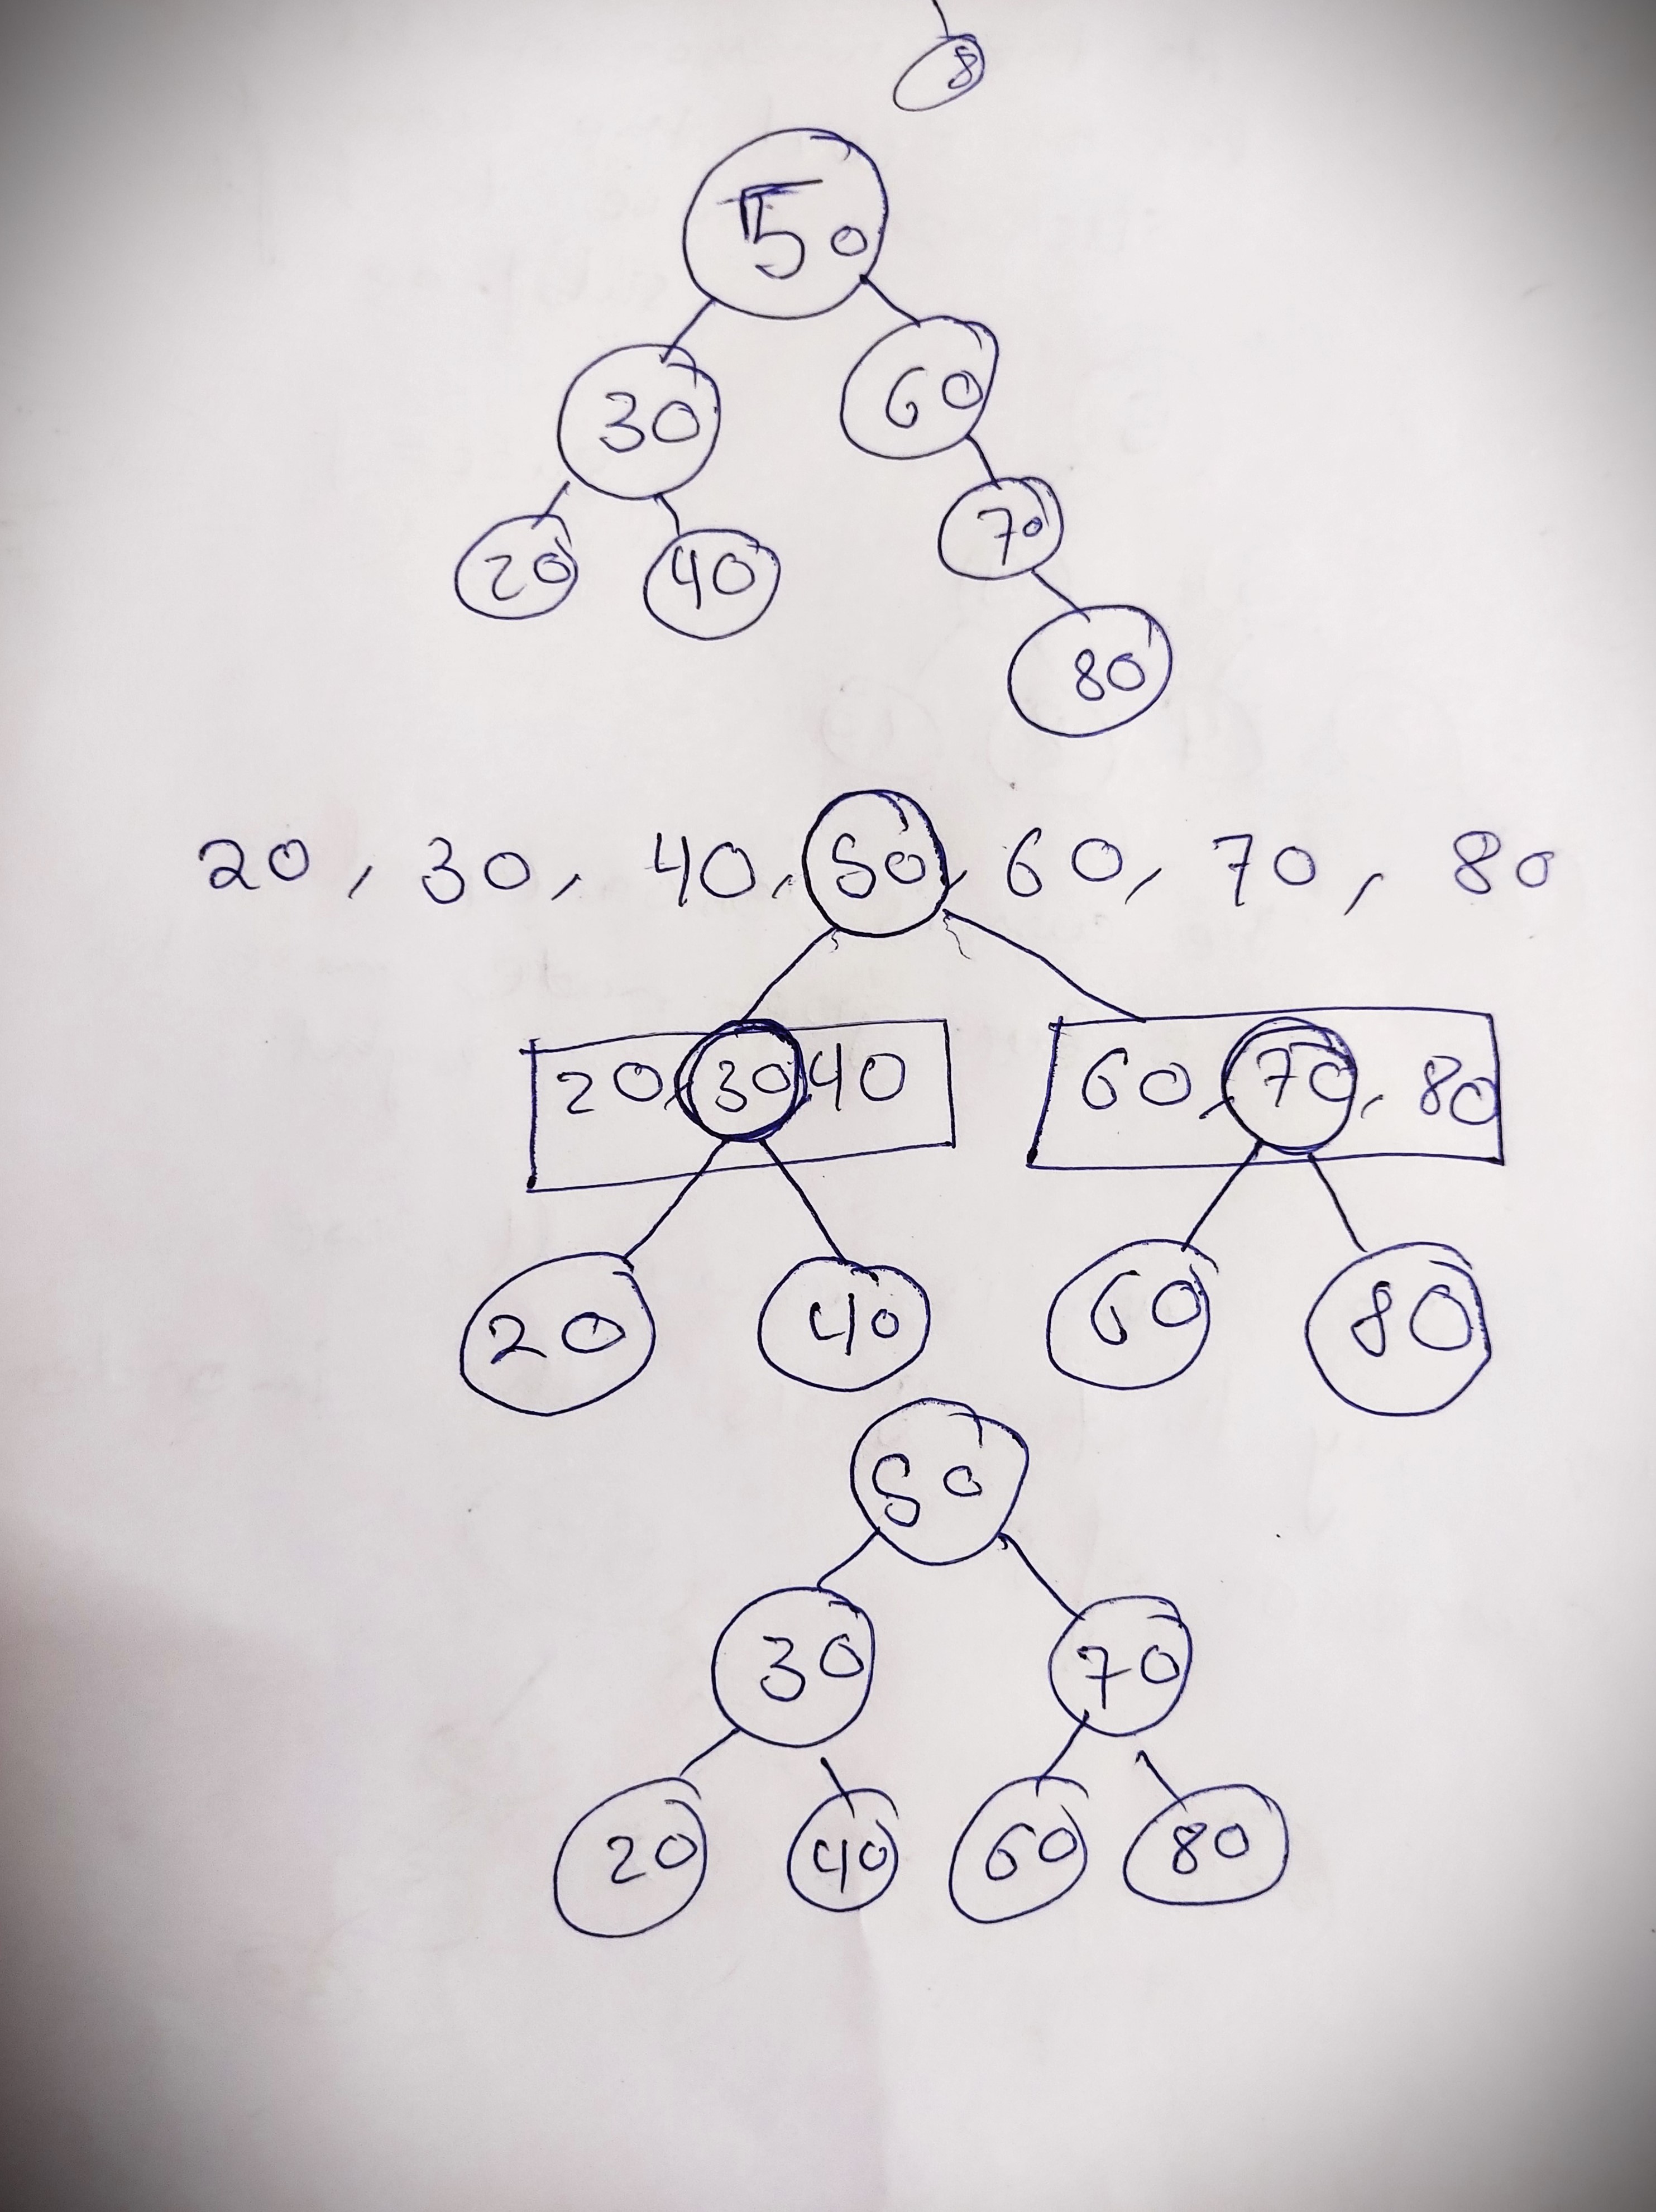 8
50
30 60
20 40 70
80
20, 30, 40, 50, 60, 70, 80
20, 30, 40 60, 70, 80
20 40 60 80
50
30 70
20 40 60 80